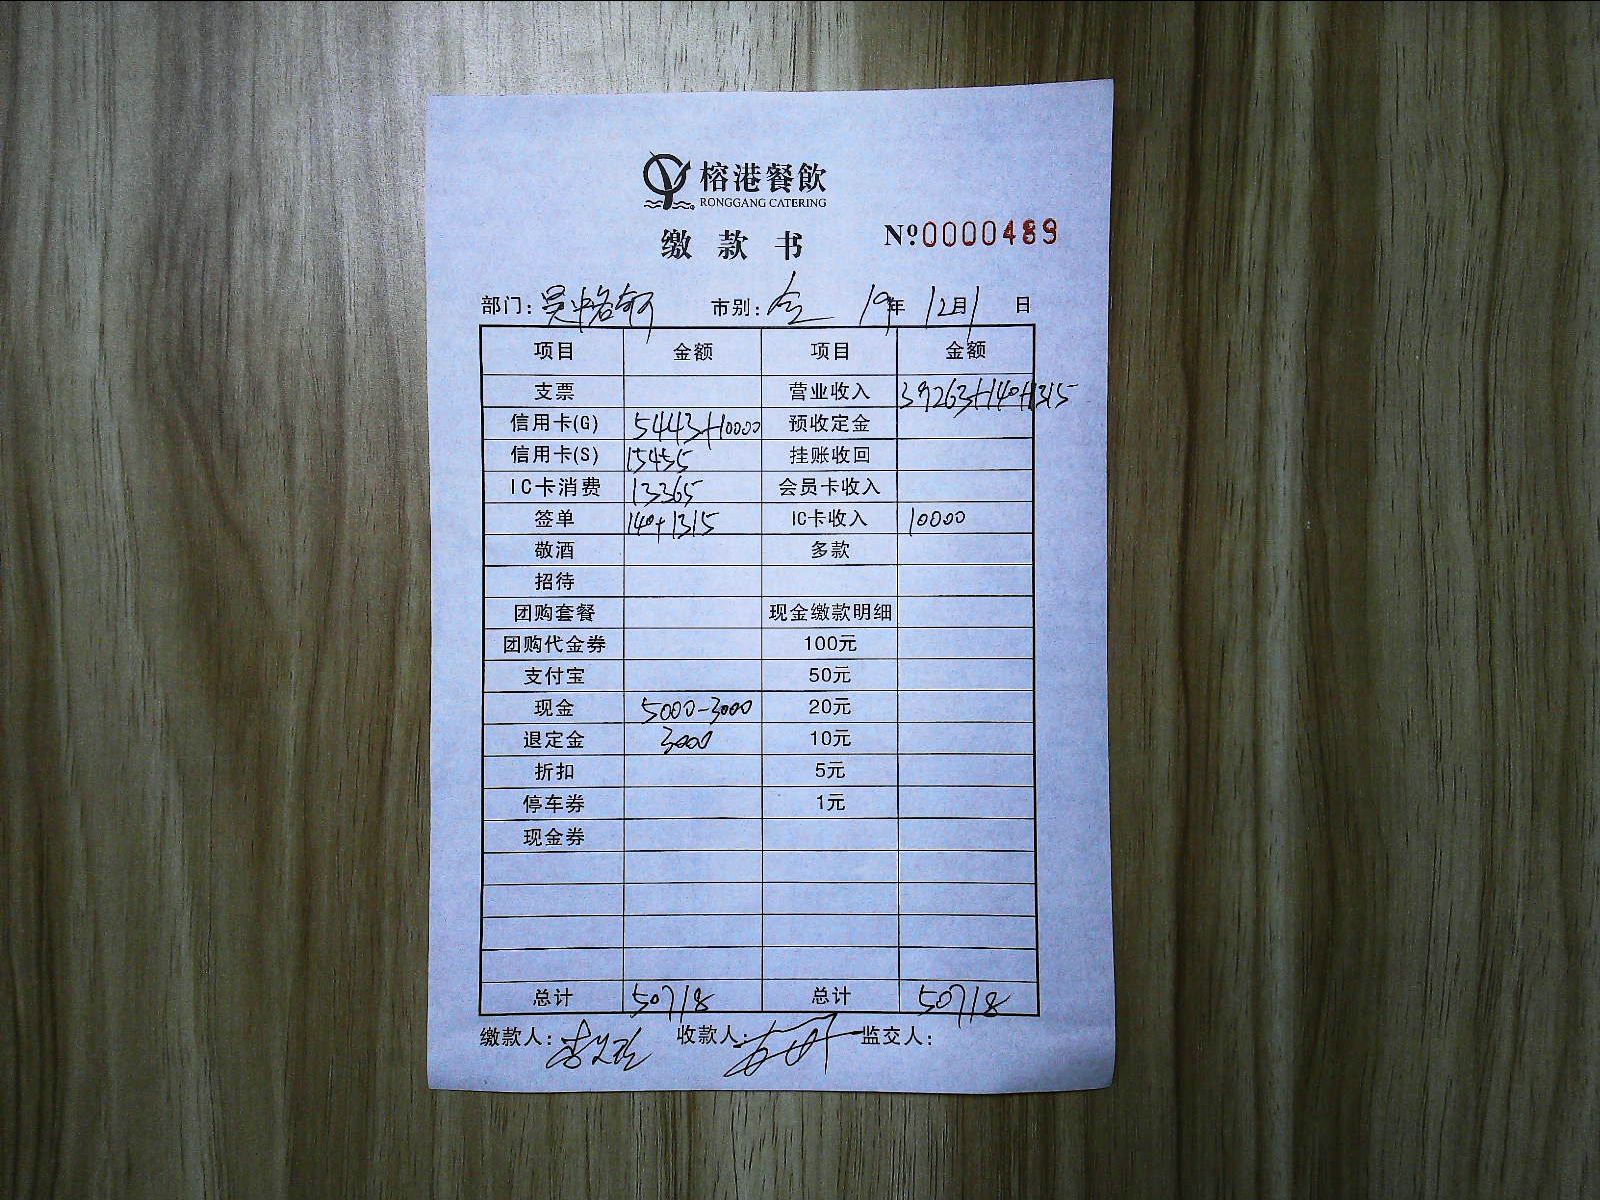 榕港餐飲
RONGGANG CATERING
缴款书 Nº0000489
部门: 吴中 市别: 全 19年 12月1日
项目 金额 项目 金额
支票 营业收入 39263+140+1315
信用卡(G) 5443+10000 预收定金
信用卡(S) 15455 挂账收回
IC卡消费 13365 会员卡收入
签单 140+1315 IC卡收入 10000
敬酒 多款
招待
团购套餐 现金缴款明细
团购代金券 100元
支付宝 50元
现金 5000-3000 20元
退定金 3000 10元
折扣 5元
停车券 1元
现金券
总计 50718 总计 50718
缴款人: 收款人: 监交人: